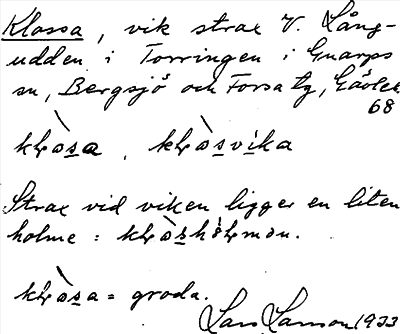 Klossa, vik strax V. Lång-
udden i Torringen i Gnarps
sn, Bergsjö och Forsa tg, Gävleb.
68
klòsa, klòsvika
Strax vid viken ligger en liten
holme: klòshólmən.
klòsa = groda.
Lars Larsson 1933